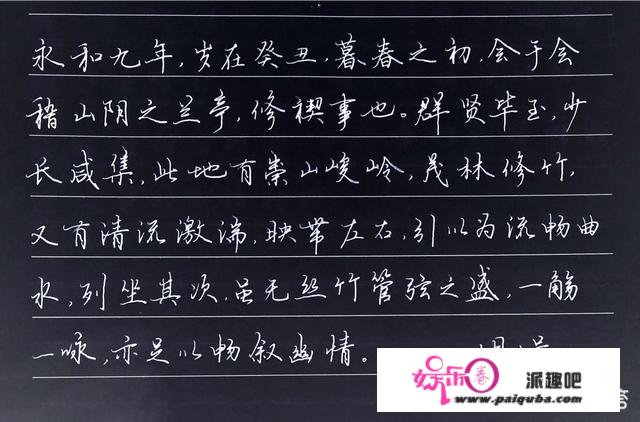 永和九年,岁在癸丑,暮春之初,会于会
稽山阴之兰亭,修禊事也。群贤毕至,少
长咸集,此地有崇山峻岭,茂林修竹,
又有清流激湍,映带左右,引以为流畅曲
水,列坐其次,虽无丝竹管弦之盛,一觞
一咏,亦足以畅叙幽情。
娱乐圈 派趣吧
www.paiquba.com